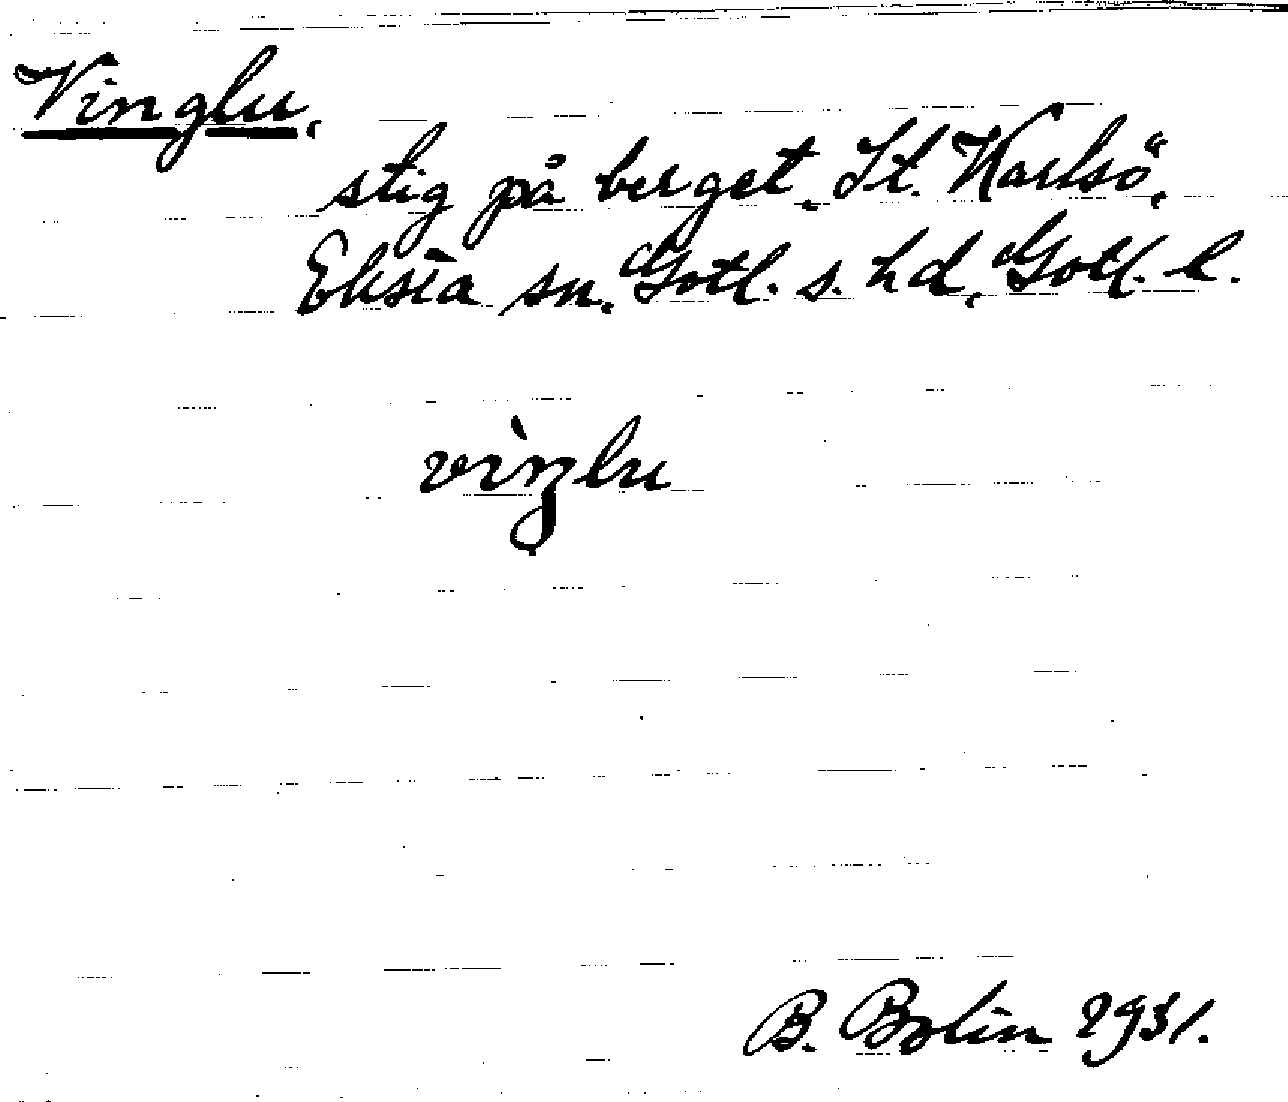 Vinglu,
stig på berget, St. Karlsö,
Eksta sn, Gotl. s. hd, Gotl. l.
vìŋlu
B. Bolin 1931.